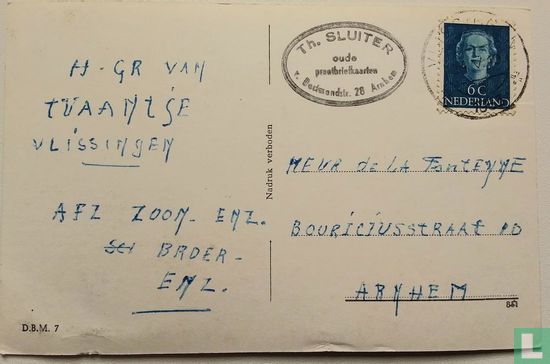 H-GR VAN
TVAANTJE
VLISSINGEN
AFZ ZOON- ENZ.
BROER-
ENZ.
D.B.M. 7
Nadruk verboden
Th. SLUITER
oude
prentbriefkaarten
28 Arnhem
6C
NEDERLAND
MEVR DE LA FONTEYNE
BOURICIUSSTRAAT
ARNHEM
catawiki